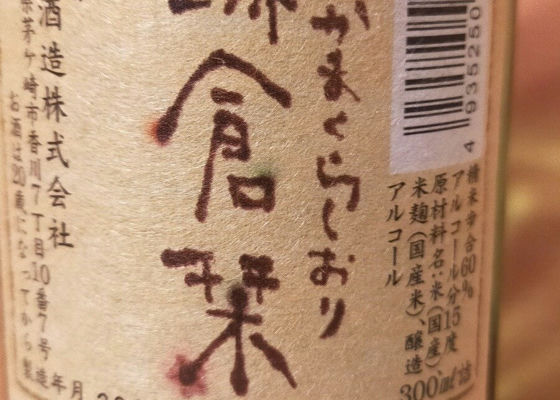 4 935250
精米歩合60%
アルコール分15度
原材料名:米(国産)
米麹(国産米)、醸造
アルコール
300ml詰
かまくらしおり
鎌倉栞
酒造株式会社
茅ケ崎市香川7丁目10番7号
お酒は20歳になってから
製造年月